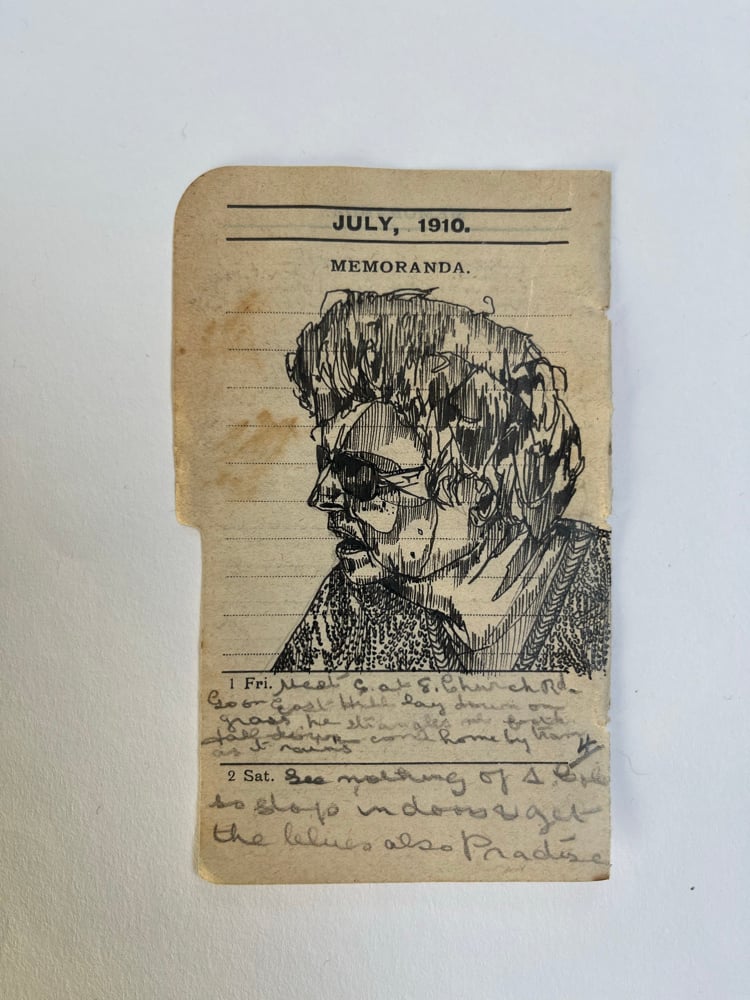 JULY, 1910.
MEMORANDA.
1 Fri. Meet G. at E. Church Rd.
Go on East Hill lay down on
grass he strangles me
come home by tram
as it rains
2 Sat. See nothing of
so stop indoors & get
the blues also Pradise